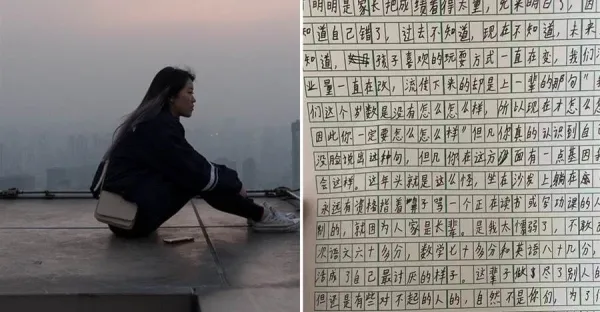 明明是家长把成绩看得太重,
知道自己错了,过去不知道,现在不知道,未来
知道,孩子喜欢的玩耍方式一直在变,我们
业量一直在改,流传下来的却是上一辈的那句“
们这个岁数是没有怎么怎么样,所以现在才怎么怎
因此你一定要怎么怎么样”但凡你真的认识到自
没脸说出这种句,但凡你在这方面有一点基因
会这样。这年头就是这么怪,坐在沙发上躺在
永远有资格指着鼻子骂一个正在读书或写功课的人
别的,就因为人家是长辈。是我太懦弱了,不敢
次语文六十多分,数学七十多分和英语八十几分,
活成了自己最讨厌的样子。这辈子做尽了别人的
但还是有些对不起的人的,自然不是你们,为了